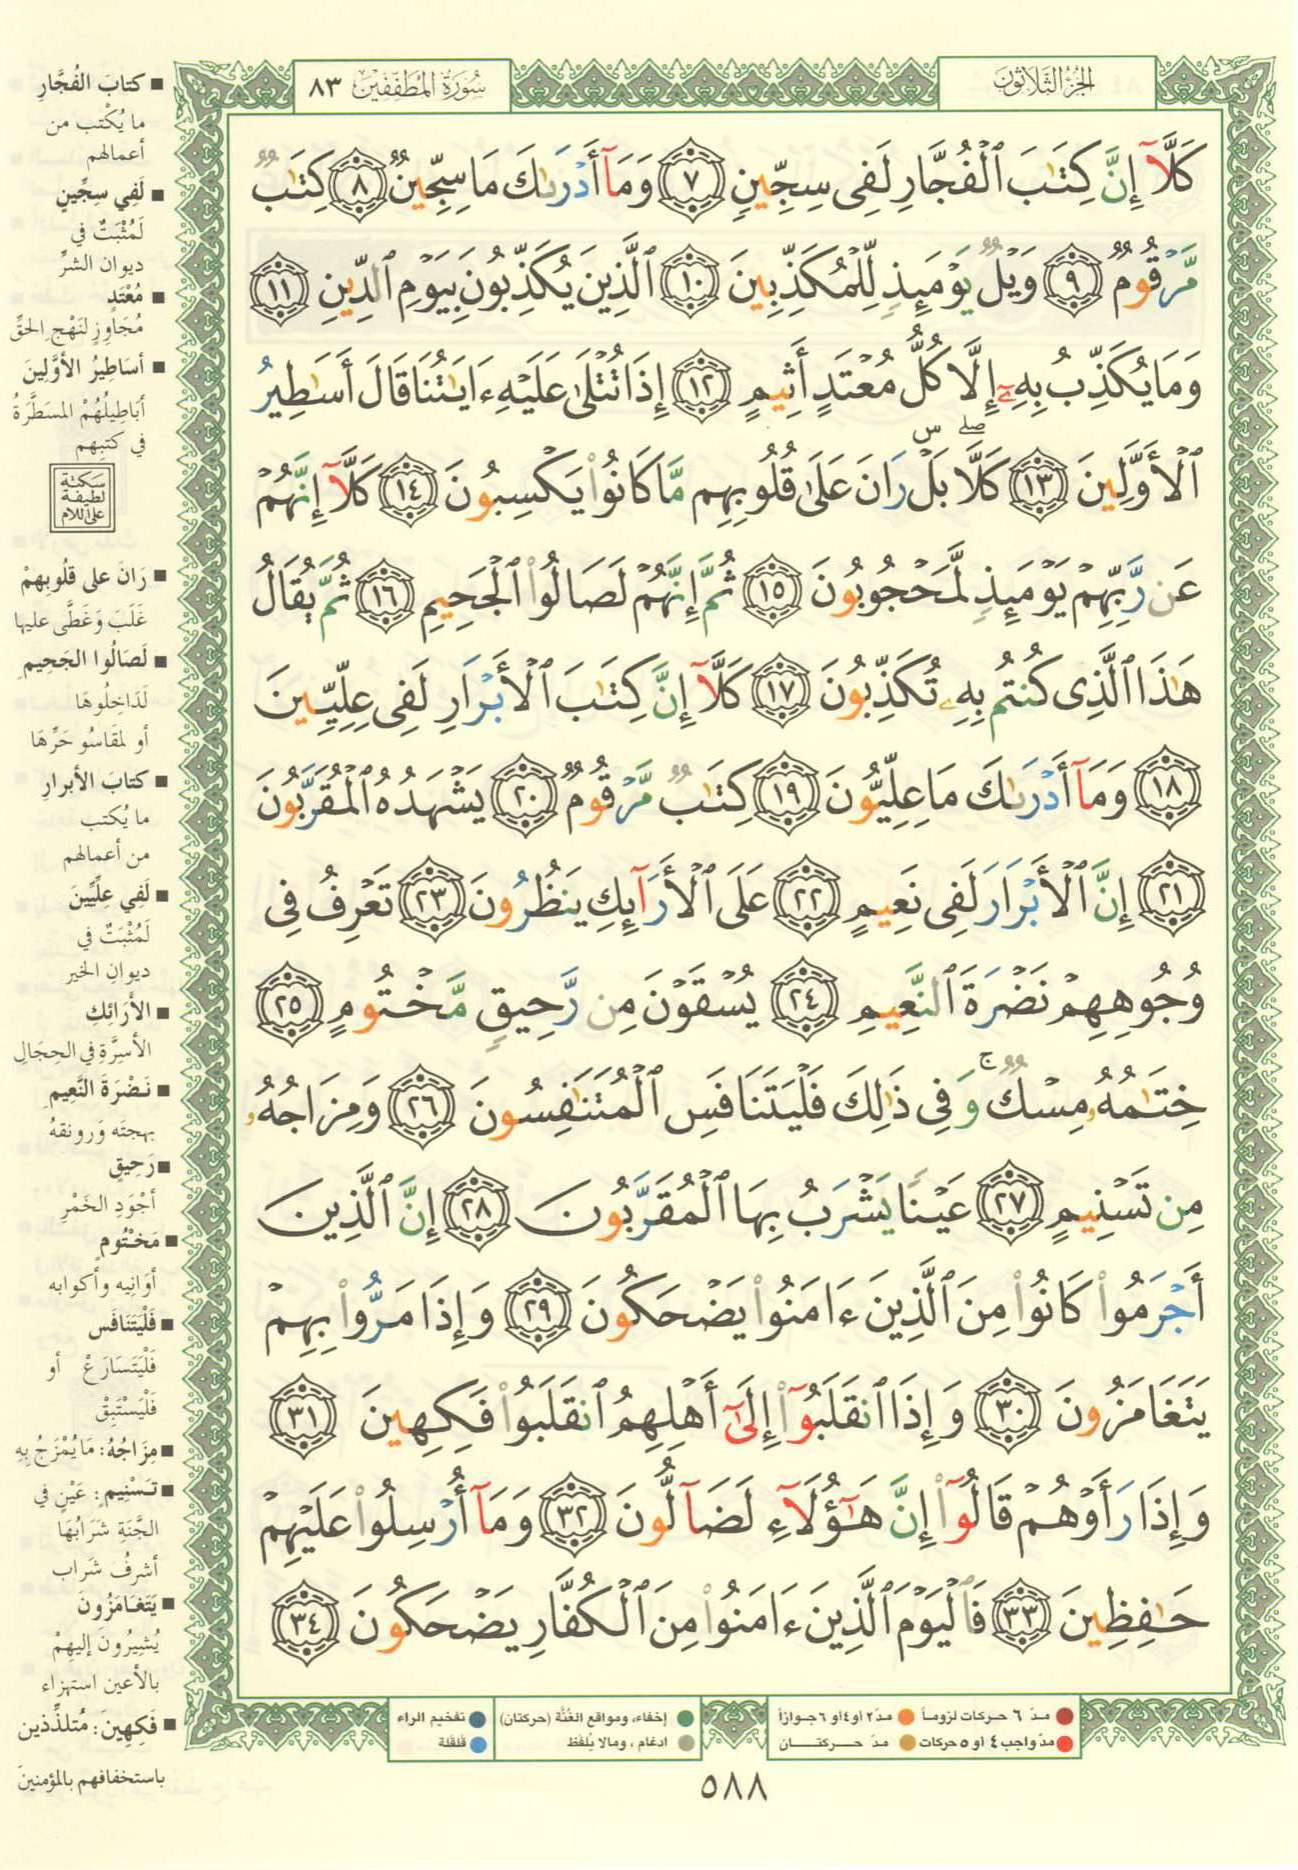 الجزء الثلاثون
سورة المطففين ٨٣
كَلَّآ إِنَّ كِتَٰبَ ٱلْفُجَّارِ لَفِى سِجِّينٍ ٧ وَمَآ أَدْرَىٰكَ مَا سِجِّينٌ ٨ كِتَٰبٌ
مَّرْقُومٌ ٩ وَيْلٌ يَوْمَئِذٍ لِّلْمُكَذِّبِينَ ١٠ ٱلَّذِينَ يُكَذِّبُونَ بِيَوْمِ ٱلدِّينِ ١١
وَمَا يُكَذِّبُ بِهِۦٓ إِلَّا كُلُّ مُعْتَدٍ أَثِيمٍ ١٢ إِذَا تُتْلَىٰ عَلَيْهِ ءَايَٰتُنَا قَالَ أَسَٰطِيرُ
ٱلْأَوَّلِينَ ١٣ كَلَّا ۖ بَلْ ۜ رَانَ عَلَىٰ قُلُوبِهِم مَّا كَانُوا۟ يَكْسِبُونَ ١٤ كَلَّآ إِنَّهُمْ
عَن رَّبِّهِمْ يَوْمَئِذٍ لَّمَحْجُوبُونَ ١٥ ثُمَّ إِنَّهُمْ لَصَالُوا۟ ٱلْجَحِيمِ ١٦ ثُمَّ يُقَالُ
هَٰذَا ٱلَّذِى كُنتُم بِهِۦ تُكَذِّبُونَ ١٧ كَلَّآ إِنَّ كِتَٰبَ ٱلْأَبْرَارِ لَفِى عِلِّيِّينَ
١٨ وَمَآ أَدْرَىٰكَ مَا عِلِّيُّونَ ١٩ كِتَٰبٌ مَّرْقُومٌ ٢٠ يَشْهَدُهُ ٱلْمُقَرَّبُونَ
٢١ إِنَّ ٱلْأَبْرَارَ لَفِى نَعِيمٍ ٢٢ عَلَى ٱلْأَرَآئِكِ يَنظُرُونَ ٢٣ تَعْرِفُ فِى
وُجُوهِهِمْ نَضْرَةَ ٱلنَّعِيمِ ٢٤ يُسْقَوْنَ مِن رَّحِيقٍ مَّخْتُومٍ ٢٥
خِتَٰمُهُۥ مِسْكٌ ۚ وَفِى ذَٰلِكَ فَلْيَتَنَافَسِ ٱلْمُتَنَٰفِسُونَ ٢٦ وَمِزَاجُهُۥ
مِن تَسْنِيمٍ ٢٧ عَيْنًا يَشْرَبُ بِهَا ٱلْمُقَرَّبُونَ ٢٨ إِنَّ ٱلَّذِينَ
أَجْرَمُوا۟ كَانُوا۟ مِنَ ٱلَّذِينَ ءَامَنُوا۟ يَضْحَكُونَ ٢٩ وَإِذَا مَرُّوا۟ بِهِمْ
يَتَغَامَزُونَ ٣٠ وَإِذَا ٱنقَلَبُوٓا۟ إِلَىٰٓ أَهْلِهِمُ ٱنقَلَبُوا۟ فَكِهِينَ ٣١
وَإِذَا رَأَوْهُمْ قَالُوٓا۟ إِنَّ هَٰٓؤُلَآءِ لَضَآلُّونَ ٣٢ وَمَآ أُرْسِلُوا۟ عَلَيْهِمْ
حَٰفِظِينَ ٣٣ فَٱلْيَوْمَ ٱلَّذِينَ ءَامَنُوا۟ مِنَ ٱلْكُفَّارِ يَضْحَكُونَ ٣٤
■ كتابَ الفُجَّارِ
ما يُكْتب من
أعمالهم
■ لَفِي سِجِّينٍ
لَمُثْبَتٌ في
ديوان الشرِّ
■ مُعْتَدٍ
مُجَاوِزٍ لنَهْجِ الحقِّ
■ أسَاطِيرُ الأوَّلِينَ
أبَاطِيلُهُمْ المسَطَّرَةُ
في كتبِهم
سكتة
لطيفة
على اللام
■ رَانَ على قلُوبِهِمْ
غَلَبَ وَغَطَّى عليها
■ لَصَالُوا الجَحِيمِ
لَدَاخِلُوهَا
أو لمقَاسُو حَرِّهَا
■ كتابَ الأبرارِ
ما يُكتب
من أعمالهم
■ لَفِي عِلِّيِّينَ
لَمُثْبَتٌ في
ديوانِ الخير
■ الأرَائِكِ
الأسِرَّةِ في الحِجَالِ
■ نَضْرَةَ النَّعِيمِ
بهجتَه وَرونقهُ
■ رَحِيقٍ
أجْوَدِ الخَمْرِ
■ مَخْتُومٍ
أوَانِيه وأكوابه
■ فَلْيَتَنَافَس
فَلْيَتَسَارَعْ أو
فَلْيَسْتَبِقْ
■ مِزَاجُهُ: مَا يُمْزَجُ بِهِ
■ تَسْنِيمٍ: عَيْنٍ في
الجَّنَةِ شَرَابُهَا
أشرفُ شَراب
■ يَتَغَامَزُونَ
يُشِيرُونَ إليهِمْ
بالأعين استهزاء
■ فَكِهِينَ: مُتلذِّذين
باستخفافهم بالمؤمنينَ
مدّ ٦ حركات لزوماً مدّ ٢ او ٤ او ٦ جوازاً
مدّ واجب ٤ او ٥ حركات مدّ حركتان
إخفاء، ومواقع الغُنَّة (حركتان) تفخيم الراء
ادغام، ومالا يُلفَظ قلقلة
٥٨٨